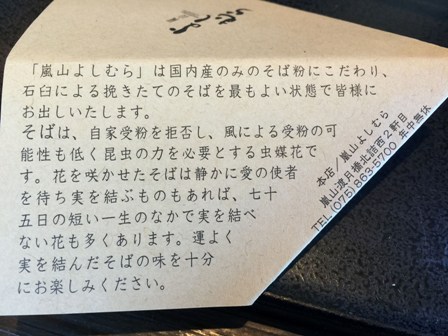 「嵐山よしむら」は国内産のみのそば粉にこだわり、
石臼による挽きたてのそばを最もよい状態で皆様に
お出しいたします。
そばは、自家受粉を拒否し、風による受粉の可
能性も低く昆虫の力を必要とする虫媒花で
す。花を咲かせたそばは静かに愛の使者
を待ち実を結ぶものもあれば、七十
五日の短い一生のなかで実を結べ
ない花も多くあります。運よく
実を結んだそばの味を十分
にお楽しみください。
本店/嵐山よしむら
嵐山渡月橋北詰西2軒目
TEL (075)863-5700 年中無休